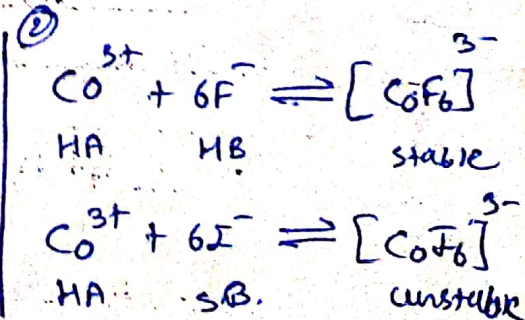 ②
Co³⁺ + 6F⁻ ⇌ [CoF₆]³⁻
HA HB stable
Co³⁺ + 6I⁻ ⇌ [CoI₆]³⁻
HA SB. unstable